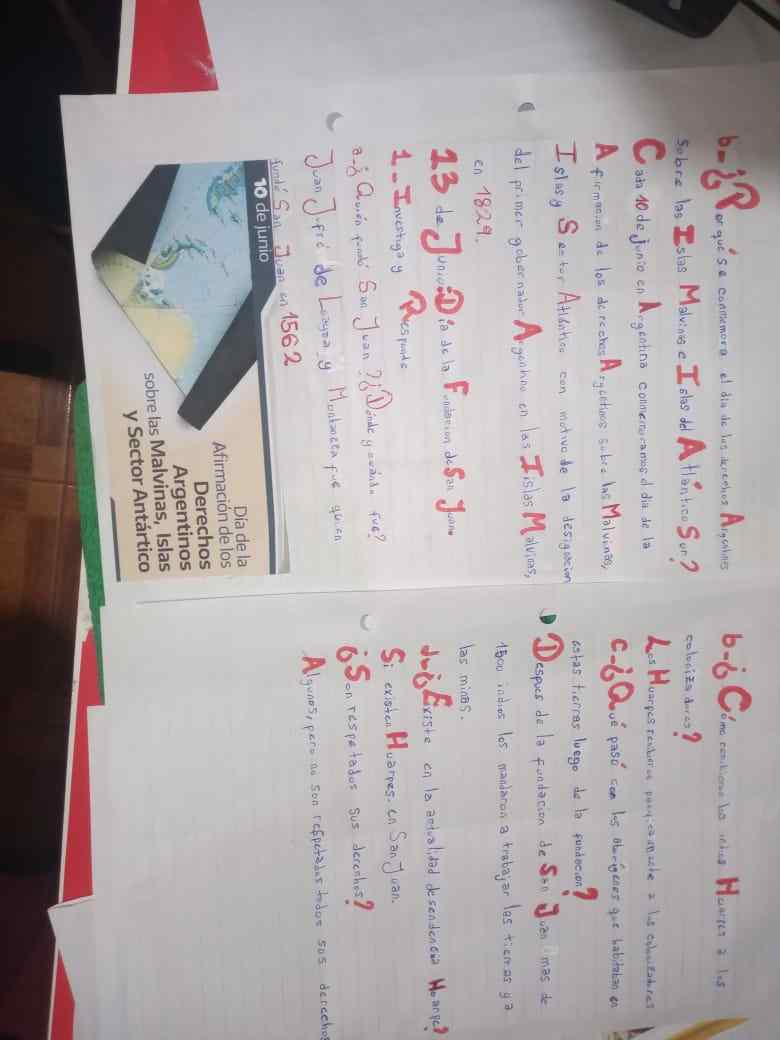 b-¿Por qué se conmemora el dia de los derechos Argentinos
sobre las Islas Malvinas e Islas del Atlántico Sur?
Cada 10 de junio en Argentina conmemoramos el dia de la
Afirmacion de los derechos Argentinos sobre las Malvinas,
Islas y Sector Atlántico con motivo de la designacion
del primer gobernador Argentino en las Islas Malvinas,
en 1829.
13 de Junio: Dia de la Fundacion de San Juan.
1-Investiga y Responde
a-¿Quién fundó San Juan?¿Dónde y cuándo fue?
Juan Jufré de Loaysa y Montaneza fue quien
fundó San Juan en 1562
10 de junio
Dia de la
Afirmación de los
Derechos
Argentinos
sobre las Malvinas, Islas
y Sector Antártico
b-¿Cómo recibieron los indios Huarpes a los
colonizadores?
Los Huarpes recibieron pacificamente a los colonizadores
c-¿Qué pasó con los aborígenes que habitaban en
estas tierras luego de la fundacion?
Despues de la fundacion de San Juan mas de
1500 indios los mandaron a trabajar las tierras y a
las minas.
d-¿Existe en la actualidad desendencia Huarpe?
Si existen Huarpes. en San Juan.
¿Son respetados sus derechos?
Algunos, pero no son respetados todos sus derechos